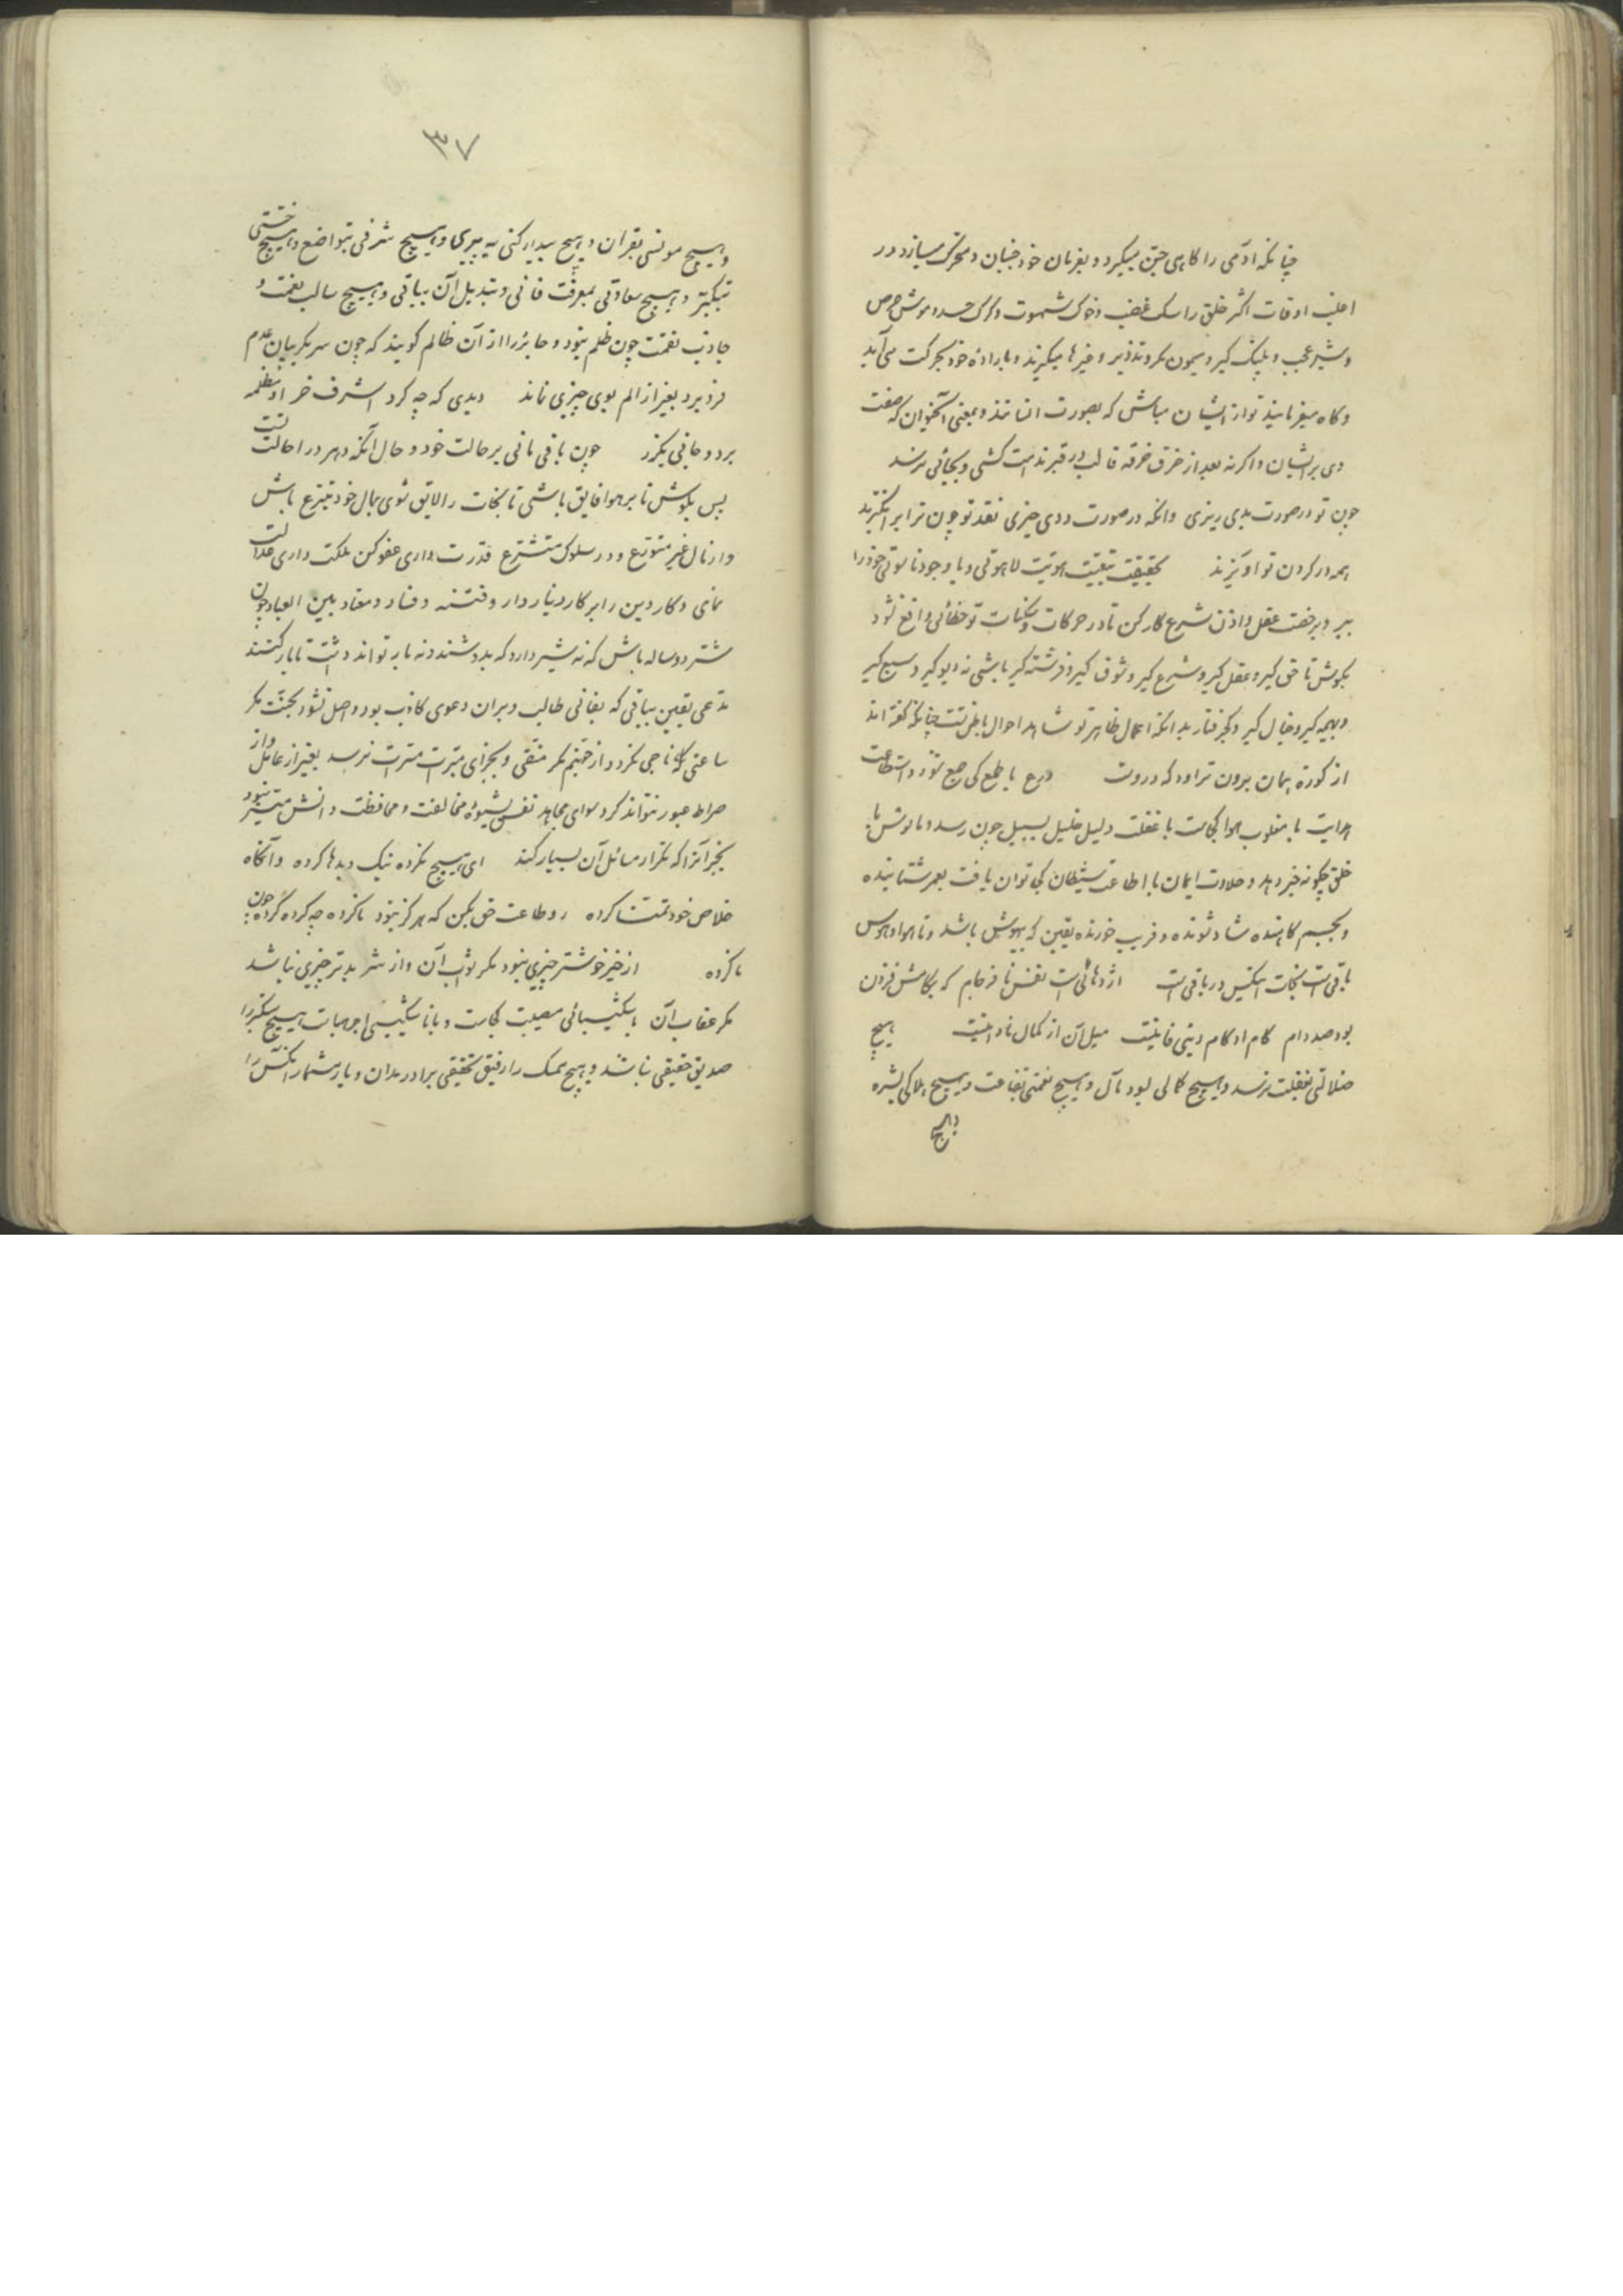 چنانکه آدمی را کاهی جن میکیرد و بفرمان خود جنبان و متحرک میسازد در
اغلب اوقات اکثر خلق را سک غضب و خوک شهوت و کرک حسد و موش حرص
و شیر عجب و پلنک کبر و میمون مکر و تذویر و غیرها میکیرند و باراده خود بحرکت می آید
و کاه میفرمایند تو از ایشان مباش که بصورت انسانند و بمعنی آنحیوان که صفت
وی بر ایشان و اکرنه بعد از خرق خرقه قالب در قبر ندامت کشی و بجائی نرسد
چون تو در صورت بدی ریزی وانکه در صورت ددی خیزی نقد تو چون ترا برانکیزند
همه در کردن تو آویزند بحقیقت هویت لاهوتی و با وجود ناسوتی خود را
ببر و برخصت عقل و اذن شرع کار کن تا در حرکات و سکنات تو خطائی واقع نشود
بکوش تا حق کیر و عقل کیر و شرع کیر و شوق کیر و فرشته کیر باشی نه دیو کیر و سبع کیر
و بهیمه کیر و خیال کیر و کج رفتار بدانکه اعمال ظاهر تو شاهد احوال باطن تست چنانکه کفته اند
از کوزه همان برون تراود که دروست ورع با طمع کی جمع شود و استطاعت
هدایت با مغلوب هوا کجاست با غفلت دلیل خلیل بسبیل چون رسد و مانوس با
خلق چکونه خیر دهد و حلاوت ایمان با اطاعت شیطان کی توان یافت بعمر شتابنده
و بجسم کاهنده شاد شونده و فریب خورنده یقین که بیهوش باشد و تا هوا و هوس
باقیست نجات آنکس در باقیست اژدهائیست نفس نافرجام که بکامش فزون
بود صد دام کام او کام دینی فانیست میل آن از کمال نادانیست هیچ
ضلالتی بغفلت نرسد و هیچ کمالی بود مآل و هیچ نعمتی بقناعت و هیچ هلاکی بشره
و هیچ
۳۷
و هیچ مونسی بقران و هیچ بیدار کنی به پیری و هیچ شرفی بتواضع و هیچ خستی
بتکبر و هیچ سعادتی بمعرفت فانی و تبدیل آن بباقی و هیچ سالب نعمت و
جاذب نقمت چون ظلم نبود و جائر را از آن ظالم کویند که چون سر بکریبان عدم
فرو برد بغیر از الم بوی چیزی نماند دیدی که چه کرد اشرف خر او مظلمه
برد و جانی بکزر چون باقی مانی بر حالت خود و حال آنکه دهر در احالتست
پس بکوش تا بر هوا فایق باشی تا نجات را لایق شوی بمال خود متبرع باش
و از مال غیر متورع و در سلوک متشرع قدرت داری عفو کن ملکت داری عدالت
نمای و کار دین را بر کار دنیا دار و فتنه و فساد و معاد بین العباد چون
شتر دو ساله باش که نه شیر دارد که بدوشندونه بار تواند داشت تا بارکنند
مدعی یقین بباقی که بفانی طالب و بران دعوی کاذب بود و اصل نشود بجنت مکر
ساعتی که ناجی نکردد از جهنم مکر متقی و بجزای مبرات مسرات نرسد بغیر از عامل و از
صراط عبور نتواند کرد سوای مجاهد نفس بشیوه مخالفت و محافظت دانش میسر نبود
بجز آنرا که تکرار مسائل آن بسیار کند ای هیچ نکرده نیک و بدها کرده وآنکاه
خلاص خود تمنا کرده رو طاعت حق بکن که هرکز نبود ناکرده چه کرده کرده چون
ناکرده از خیر خوشتر چیزی نبود مکر ثواب آن و از شر بدتر چیزی نباشد
مکر عقاب آن با شکیبائی مصیبت کجاست و با ناشکیبی اجر هیهات هیچ متکبر را
صدیق حقیقی نباشد و هیچ ممسک را رفیق تحقیقی برادر مدان و یار مشمار آنکس را